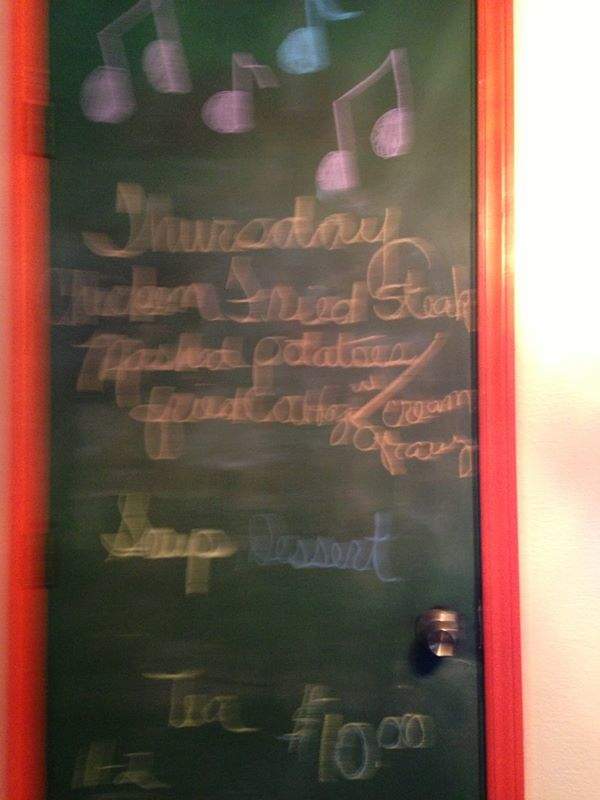 Thursday
Chicken Fried Steak
Mashed potatoes
w/ cream
gravy
fried
Soup Dessert
Tea $10.00